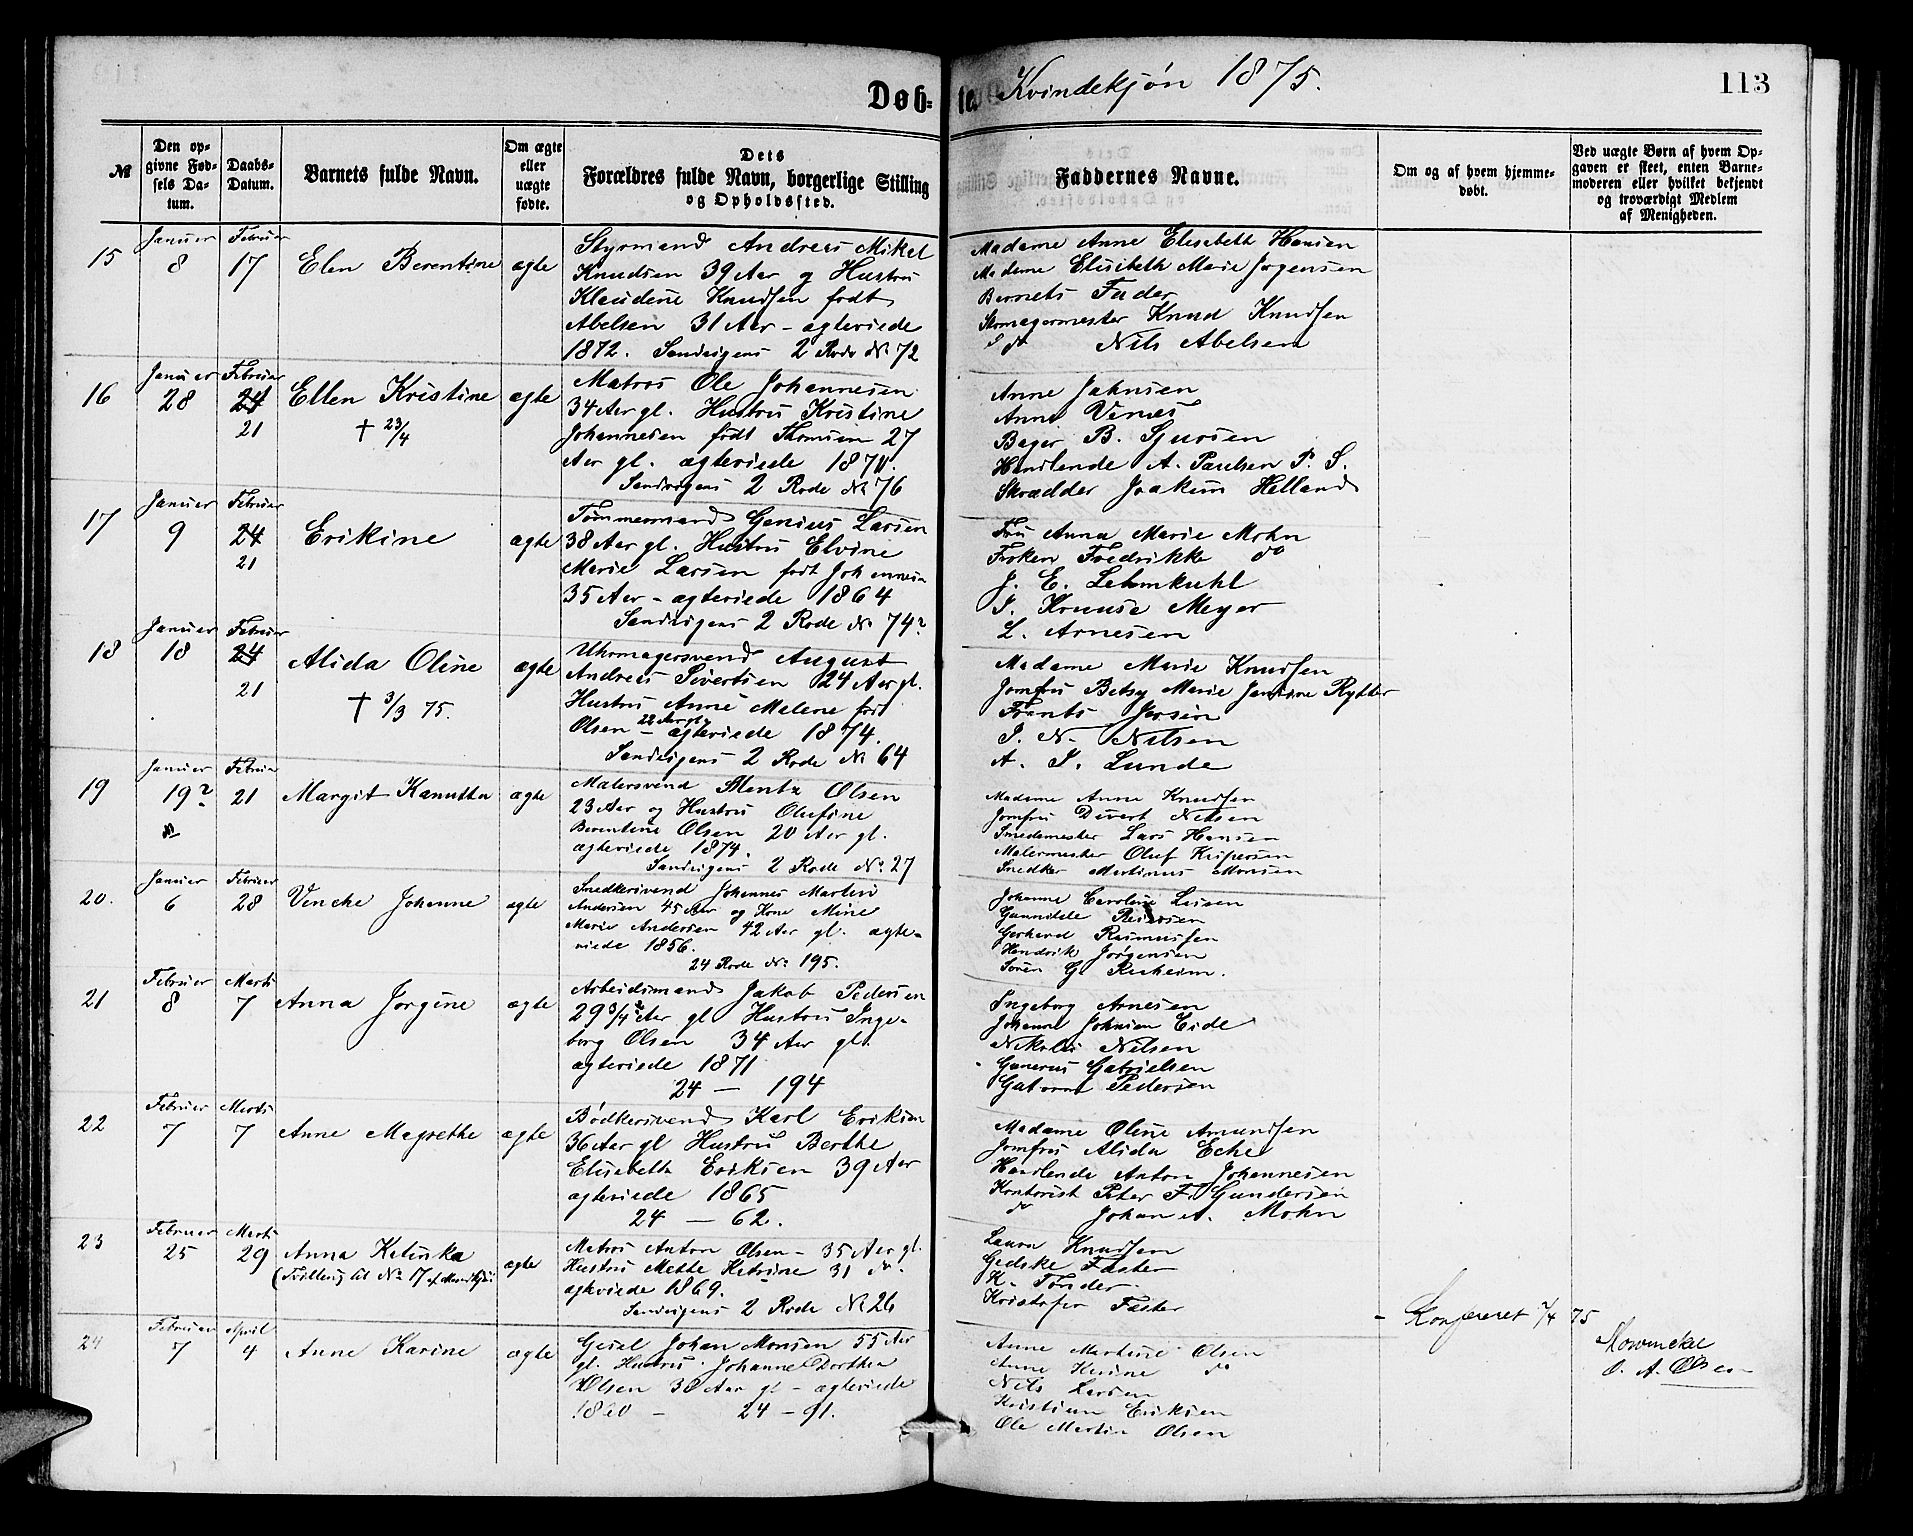 Døb-te Kvindekjøn 1875. 113
№
Den opgivne Fødsels Datum.
Daabs-Datum.
Barnets fulde Navn.
Om ægte eller uægte fødte.
Dets Forældres fulde Navn, borgerlige Stilling og Opholdssted.
Faddernes Navne.
Om og af hvem hjemmedøbt.
Ved uægte Børn af hvem Opgaven er skeet, enten Barnemoderen eller hvilket bekjendt og troværdigt Medlem af Menigheden.
15 Januar 8 Februar 17 Elen Berentine ægte
Styrmand Andreas Mikel
Knudsen 39 Aar og Hustru
Klaudine Knudsen født
Abelsen 31 Aar - ægteviede
1872. Sandvigens 2 Rode № 72
Madame Anne Elisabeth Hansen
Madame Elisabeth Marie Jørgensen
Barnets Fader
Skomagermester Knud Knudsen
do Nils Abelsen
16 Januar 28 Februar 24 21 Ellen Kristine ægte
† 23/4
Matros Ole Johannesen
34 Aar gl. Hustru Kristine
Johannesen født Thomsen 27
Aar gl. ægteviede 1870.
Sandvigens 2 Rode № 76
Anne Jahnsen
Anne Vernes
Bager B. Sjursen
Handlende A. Paulsen P. S.
Skrædder Joakim Helland
17 Januar 9 Februar 24 21 Erikine ægte
Tømmermand Genius Larsen
38 Aar gl. Hustru Elvine
Marie Larsen født Johannesen
35 Aar - ægteviede 1864
Sandvigens 2 Rode № 74?
Fru Anna Marie Mohn
Frøken Fredrikke do
J. E. Lehmkuhl
J. Krause Meyer
L. Arnesen
18 Januar 18 Februar 24 21 Alida Oline ægte
† 3/3 75.
Uhrmagersvend August
Andreas Sivertsen 24 Aar gl.
Hustru Anne Malene født
Olsen 22 Aar gl. - ægteviede 1874.
Sandvigens 2 Rode № 64
Madame Marie Knudsen
Jomfru Betsy Marie Jansine Rytter
Frants Jersin
J. N. Nilsen
A. J. Lunde
19 Januar 19? Februar 21 Margit Kanutta ægte
Malersvend Mentz Olsen
23 Aar og Hustru Olufine
Berentine Olsen 20 Aar gl.
ægteviede 1874.
Sandvigens 2 Rode № 27
Madame Anne Knudsen
Jomfru Divert Nilsen
Smedemester Lars Hansen
Malermester Oluf Kaspersen
Snedker Martinus Monsen
20. Januar 6 Februar 28 Venche Johanne ægte
Snedkersvend Johannes Martin
Andersen 45 Aar og Kone Mine
Marie Andersen 42 Aar gl. ægte-
viede 1856.
24 Rode № 195.
Johanne Caroline Larsen
Gunnilde Pedersen
Gerhard Rasmussen
Hendrik Jørgensen
Søren G. Risheim.
21 Februar 8 Marts 7 Anna Jørgine ægte
Arbeidsmand Jakob Pedersen
29 3/4 Aar gl Hustru Inge-
borg Olsen 34 Aar gl.
ægteviede 1871
24 — 194
Ingeborg Arnesen
Johanne Johnsen Eide
Nikolai Nilsen
Gunerus Gabrielsen
Pedersen
22 Februar 7 Marts 7 Anne Magrethe ægte
Bødkersvend Karl Eriksen
36 Aar gl Hustru Berthe
Elisabeth Eriksen 39 Aar
ægteviede 1865
24 — 62.
Madame Oline Amundsen
Jomfru Alida Eche
Handlende Anton Johannesen
Kontorist Peter F. Gundersen
do Johan A. Mohn
23 Februar 25 Marts 29 Anna Katinka ægte
(Tvilling til № 17 af Mandkjøn
Matros Anton Olsen - 35 Aar gl.
Hustru Mette Katrine 31 do.
ægteviede 1869.
Sandvigens 2 Rode № 26
Laura Knudsen
Gedske Faster
K. Tønder
Kristofer Faster
24 Februar 7 April 4 Anne Karine ægte
Johan Monsen 55 Aar
gl. Hustru Johanne Dorthea
Olsen 30 Aar gl - ægteviede
24 - 91.
Anne Martine Olsen
Anne Karine do
Nils Larsen
Kristian Eriksen
Ole Martin Olsen
- Konfereret 7/4 75
Rowincke
O. A. Olsen